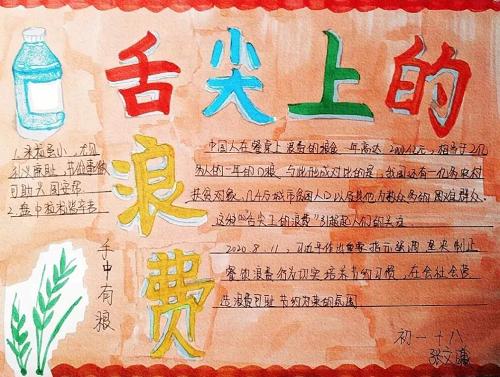 舌尖上的
浪费
1.米粒虽小,尤见
利义廉耻,节俭事微
可助兴国安邦
2.盘中粒粒皆辛苦
手中有粮
中国人在餐桌上浪费的粮食一年高达2000亿元,相当于2亿
多人的一年的口粮,与此形成对比的是,我国还有一亿多农村
扶贫对象、几千万城市贫困人口以及其他为数众多的困难群众.
这种“舌尖上的浪费”引起起人们的关注
2020.8.11,习近平作出重要指示强调,坚决制止
餐饮浪费行为切实培养节约习惯,在全社会营
造浪费可耻节约为荣的氛围
初一十八